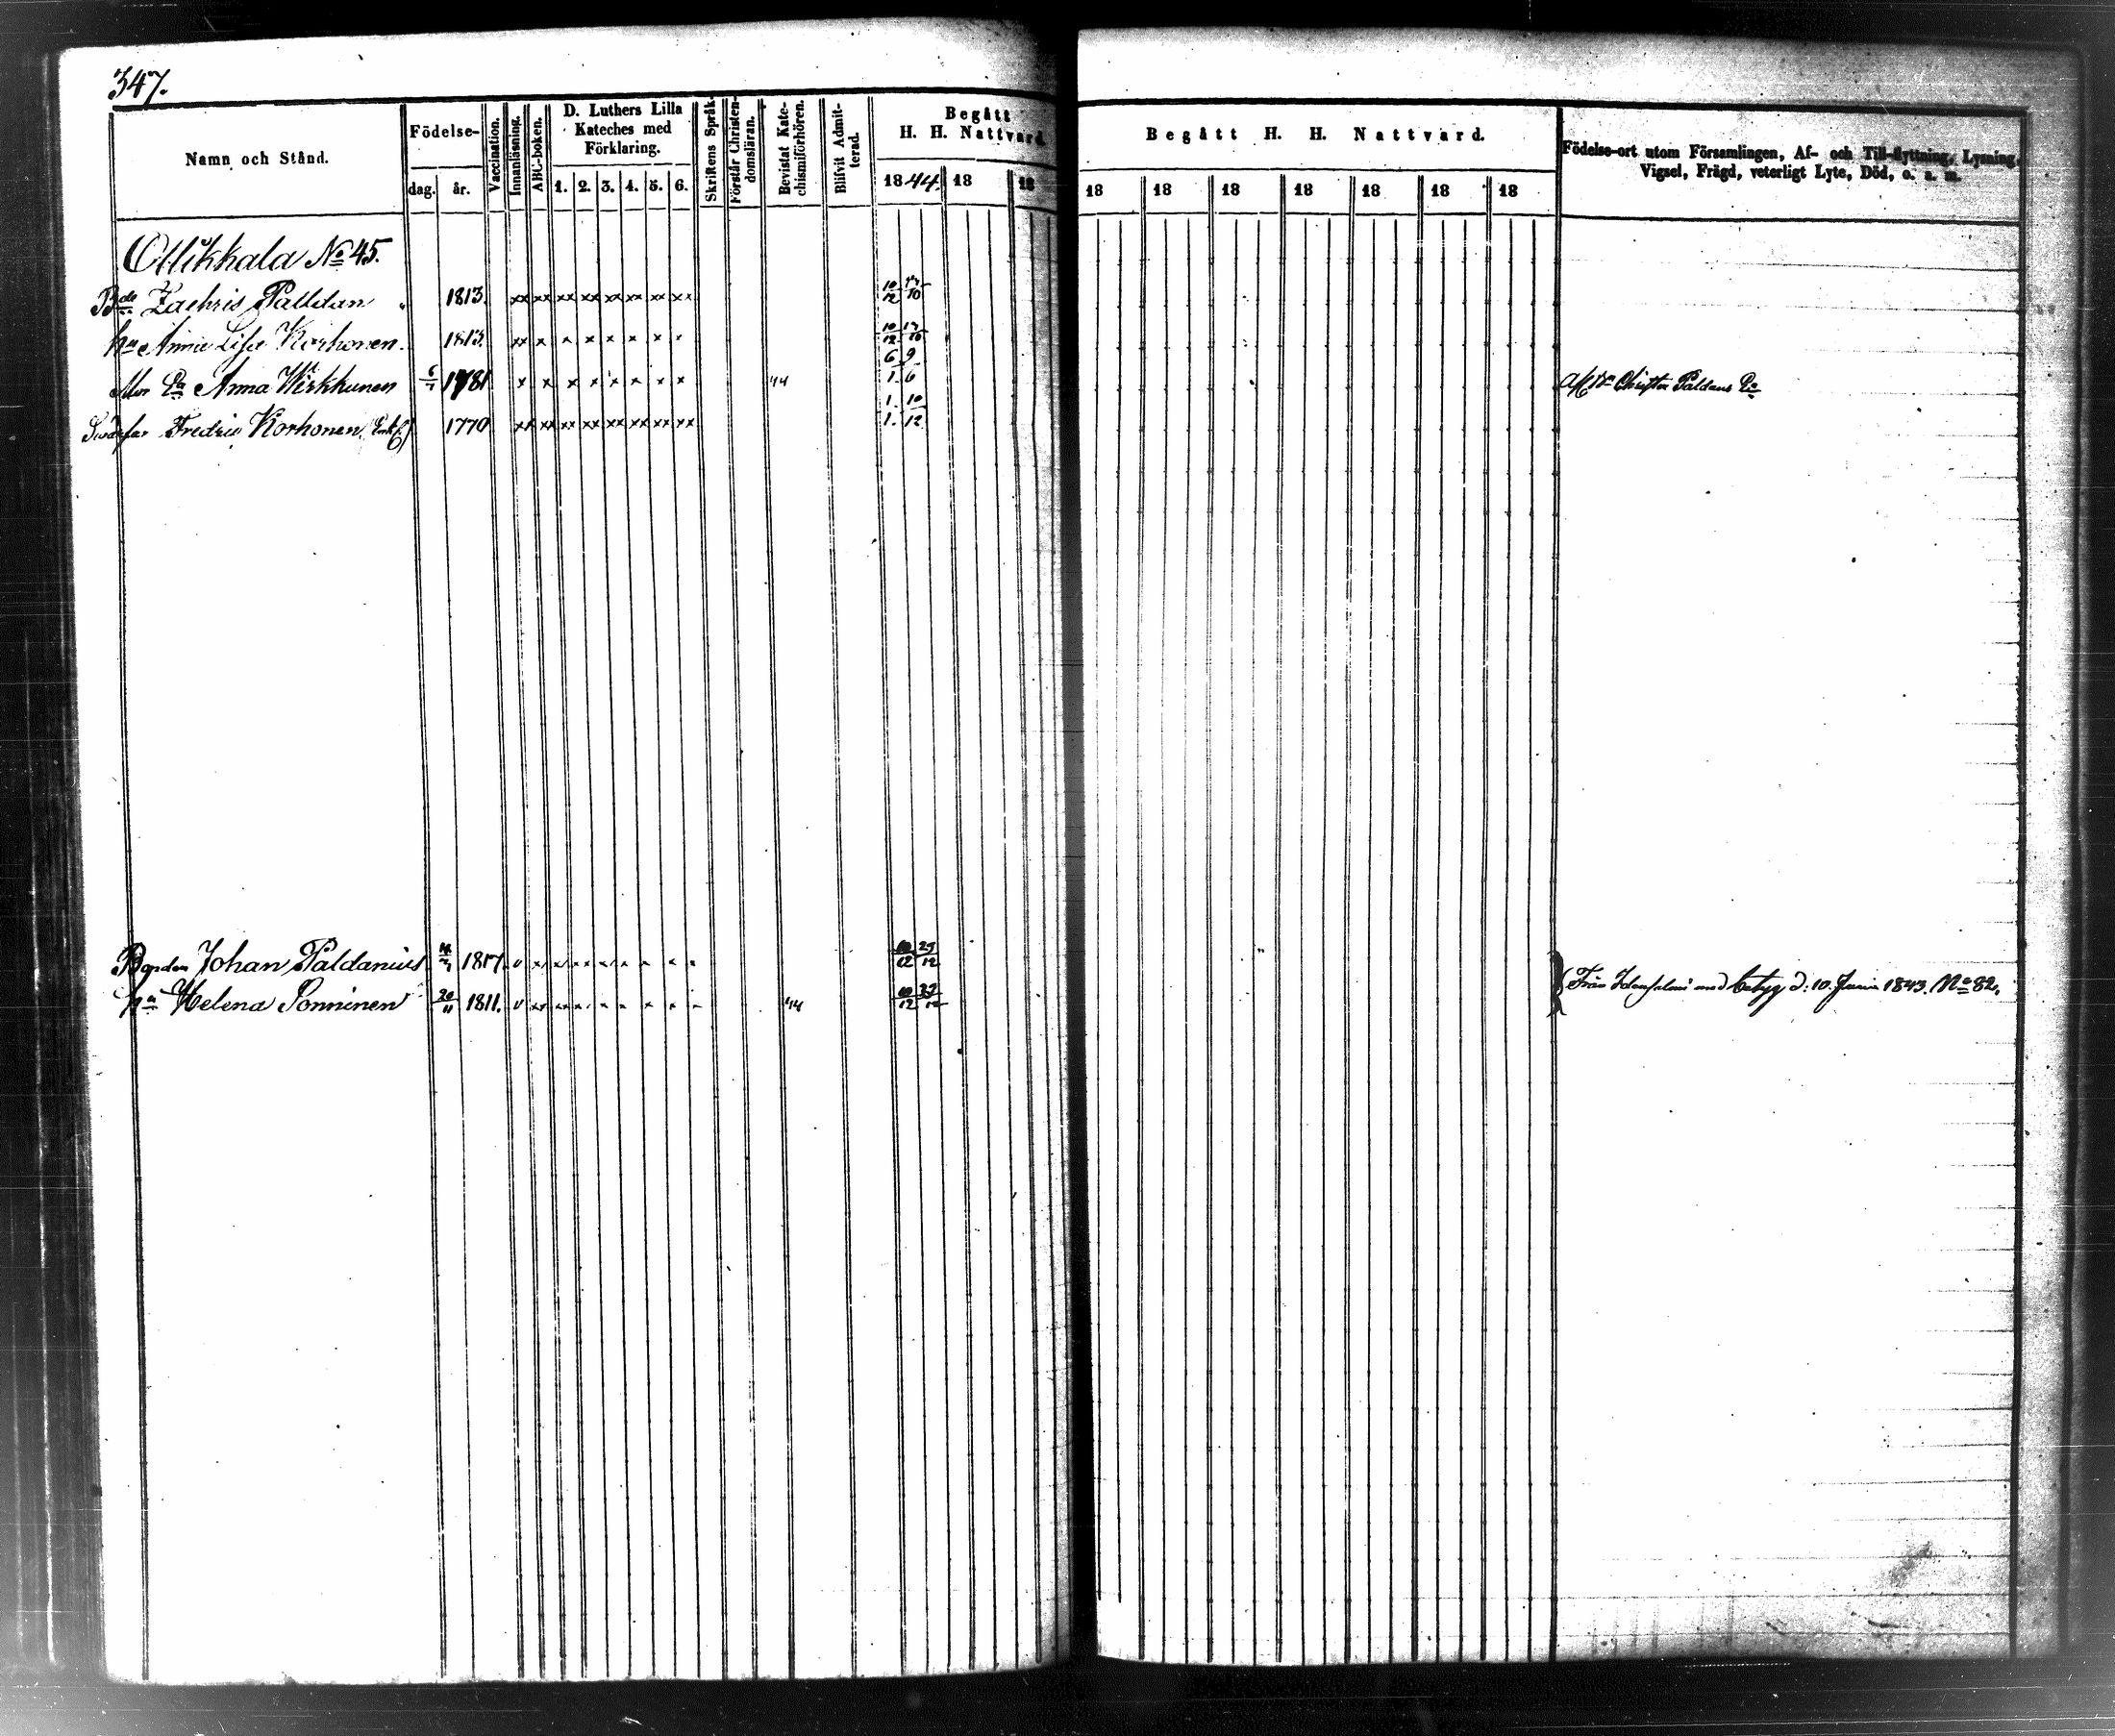 347.
Namn och Stånd.
Födelse-
dag. år.
Vaccination.
Innanläsning.
ABC-boken.
D. Luthers Lilla
Kateches med
Förklaring.
1. 2. 3. 4. 5. 6.
Skriftens Språk.
Förstår Christen-
domsläran.
Bevistat Kate-
chismiförhören.
Blifvit Admit-
terad.
Begått
H. H. Nattvard.
1844 18 18
Begått H. H. Nattvard.
18 18 18 18 18 18 18
Födelse-ort utom Församlingen, Af- och Till-flyttning, Lysning,
Vigsel, Frägd, veterligt Lyte, Död, o. s. m.
Ollikkala No 45.
Bde Zachris Palldan 1813. xx xx xx xx xx xx xx xx 10/12
hu Anna Lisa Korhonen. 1813. xx x x x x x x x 10/12
Mor Ea Anna Wirkkunen 6/7 1781 x x x x x x x x 44 6/1 9/6 Christer Paldans Ea
Swärfar Fredric Korhonen, Enkl. 1770 xx xx xx xx xx xx xx xx 1/1 10/12
Bonden Johan Paldanius 1817. v x x x x x x x 10/12 25/12
hu Helena Sonninen 20/11 1811. v xx xx x x x x x 44 10/12
Från med betyg d: 10 Junii 1843. No 82.